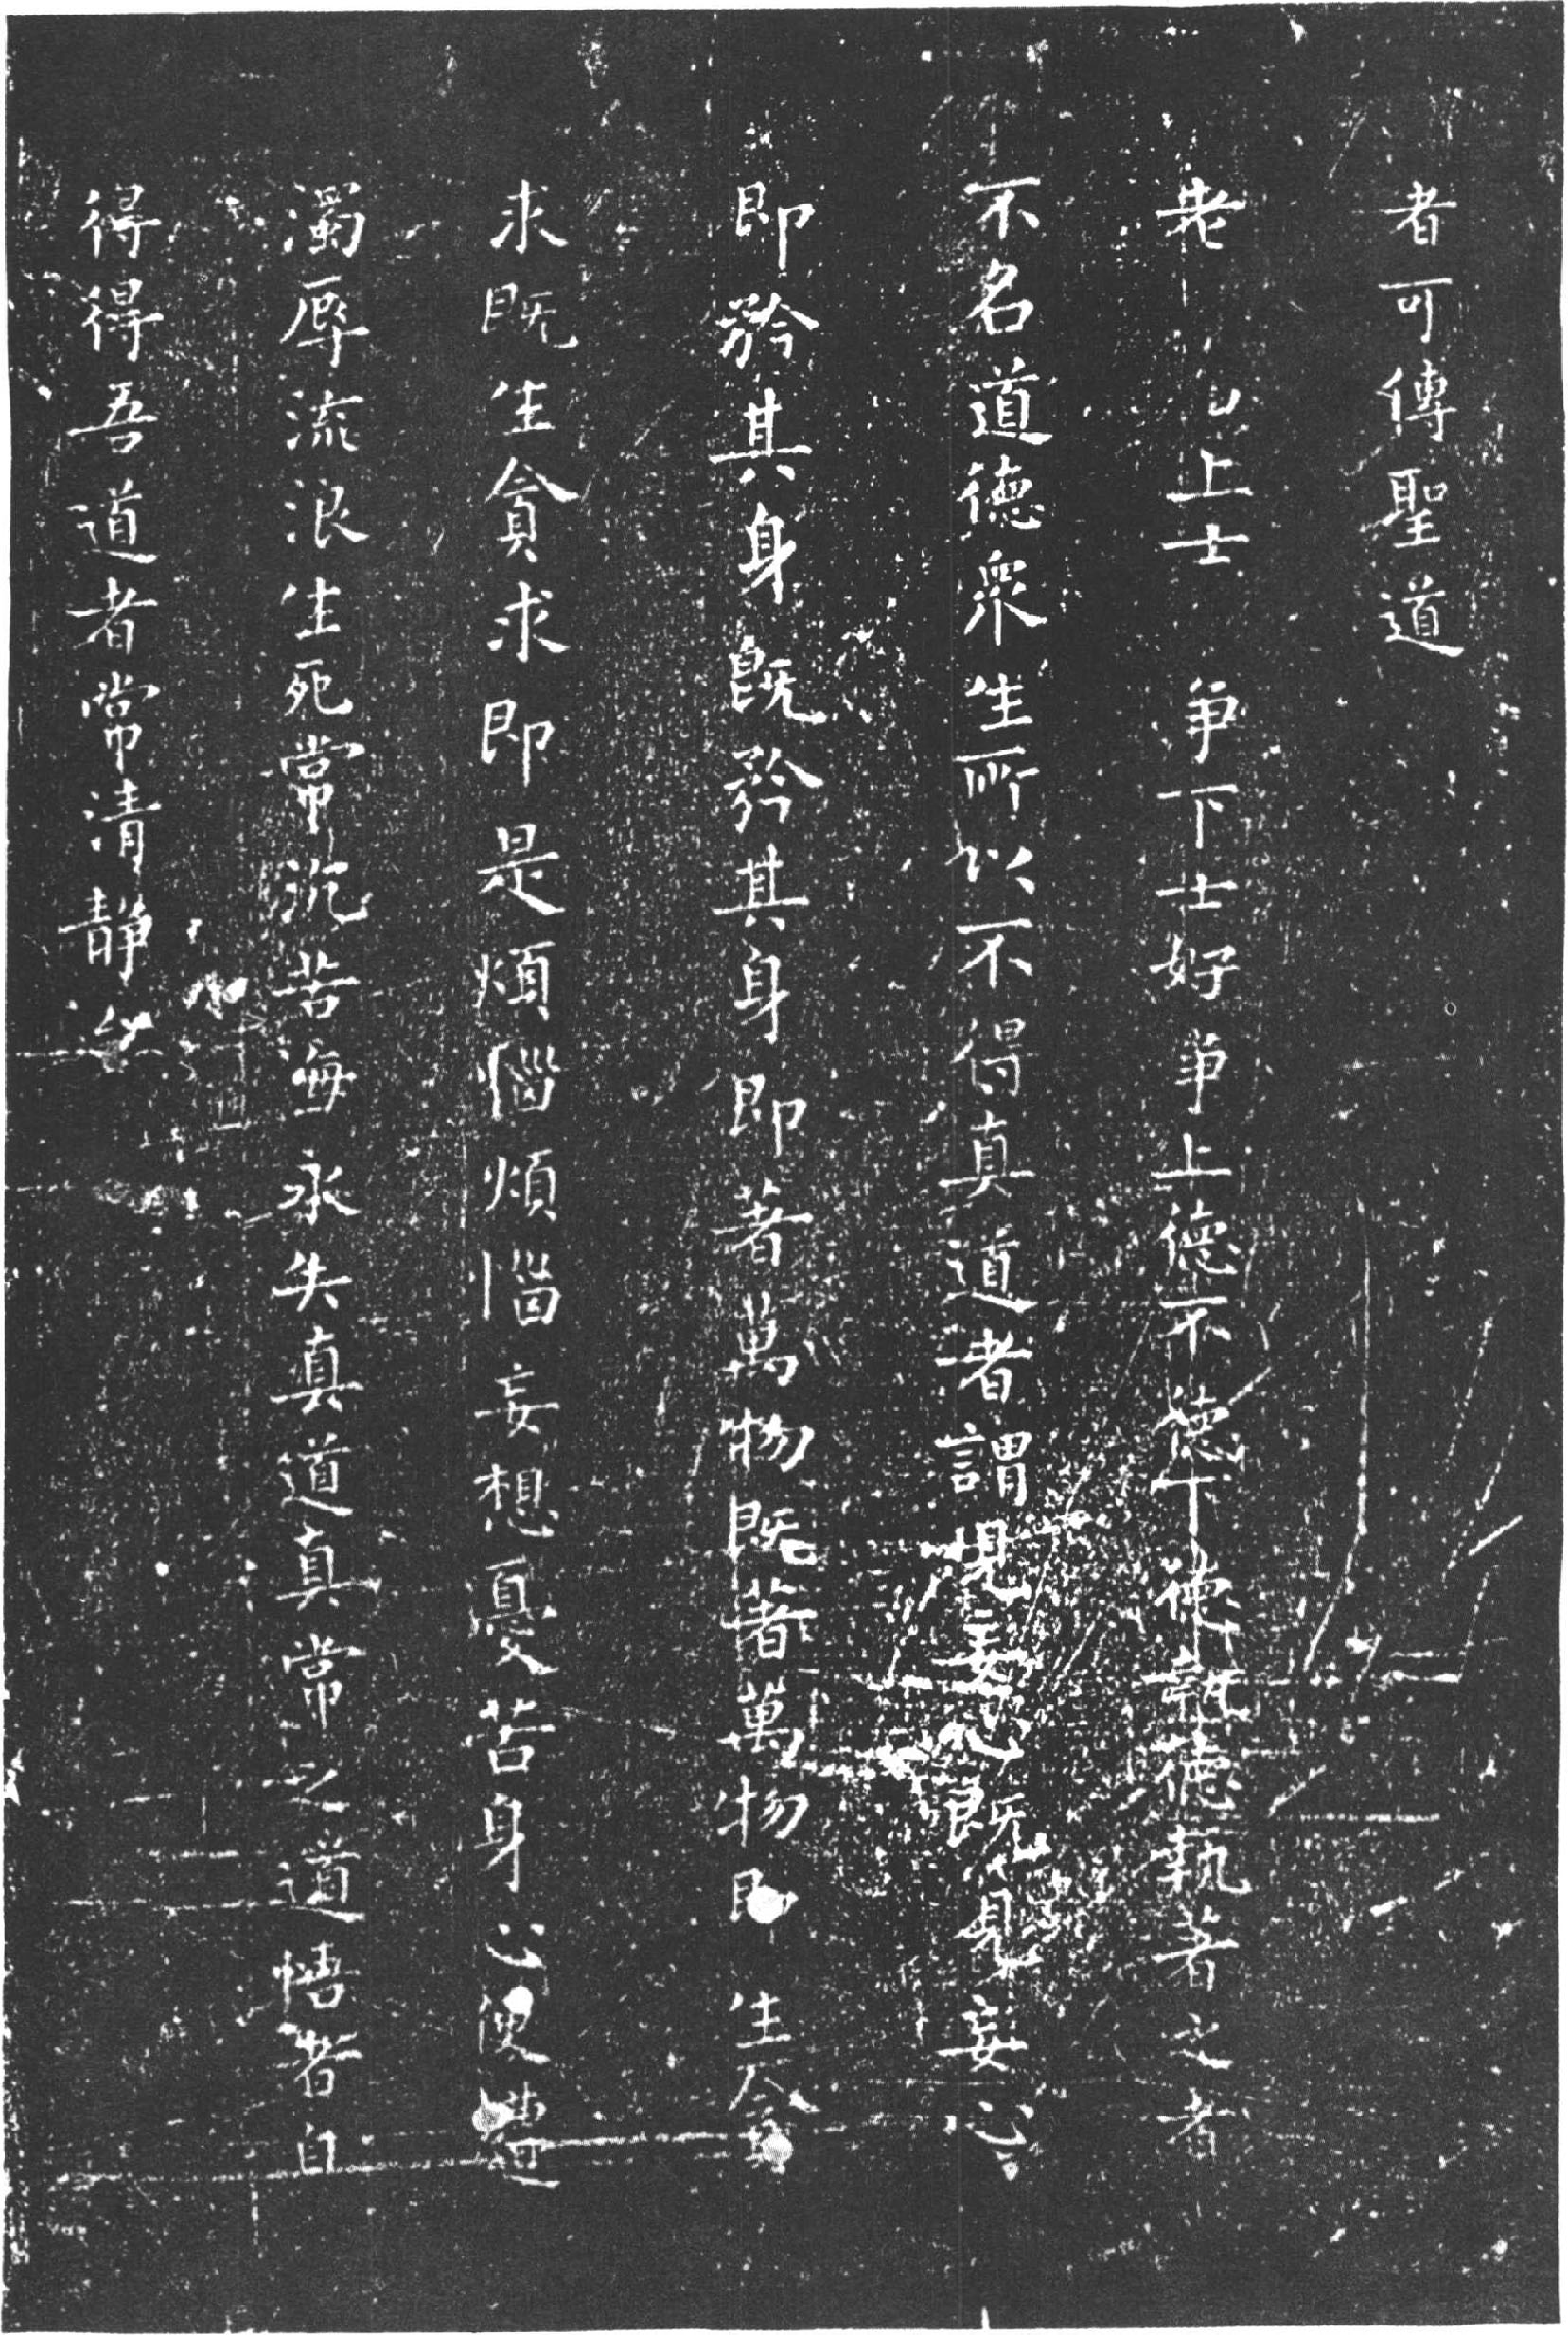 者可傳聖道
老 上士 爭下士好爭上德不德下德執德執著之者
不名道德衆生所以不得真道者謂見妄心既見妄心
即矜其身既矜其身即著萬物既著萬物即生貪
求既生貪求即是煩惱煩惱妄想憂苦身心便遭
濁辱流浪生死常沉苦海永失真道真常之道悟者自
得得吾道者常清靜